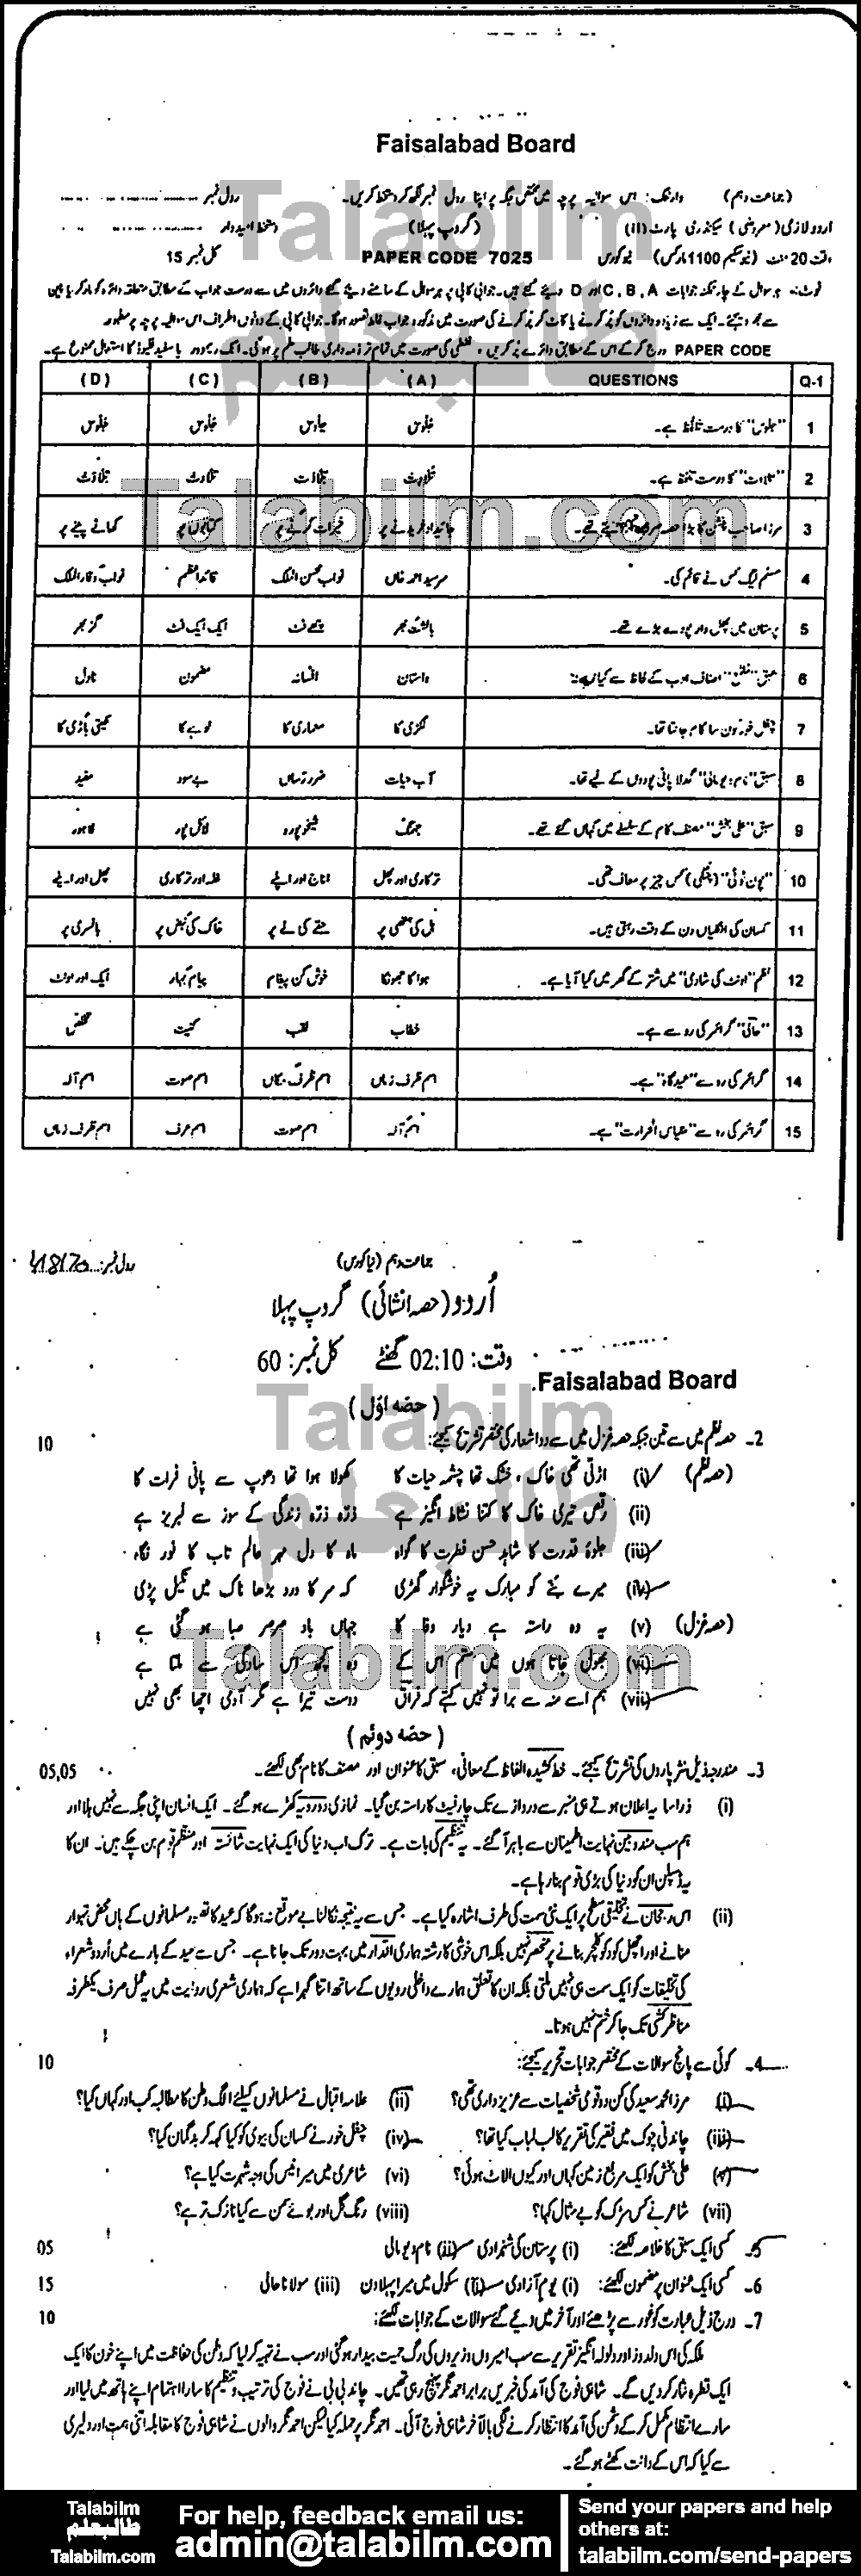 Faisalabad Board
(جماعت دہم) وارننگ: اس سوالیہ پرچہ میں مختص جگہ پر اپنا رول نمبر لکھ کر دستخط کریں۔ رول نمبر
اردو لازمی (معروضی) سیکنڈری پارٹ (II) (گروپ پہلا) دستخط امیدوار
وقت 20 منٹ (نیو سکیم 1100 مارکس) نیو کورس PAPER CODE 7025 کل نمبر 15
نوٹ: ہر سوال کے چار ممکنہ جوابات C, B, A اور D دیئے گئے ہیں۔ جوابی کاپی پر ہر سوال کے سامنے دیئے گئے دائروں میں سے درست جواب کے مطابق متعلقہ دائرہ کو مارکر یا پین
سے بھر دیجئے۔ ایک سے زیادہ دائروں کو پُر کرنے یا کاٹ کر پُر کرنے کی صورت میں مذکورہ جواب غلط تصور ہوگا۔ جوابی کاپی کے دونوں اطراف اس سوالیہ پرچہ پر مطبوعہ
PAPER CODE درج کر کے اس کے مطابق دائرے پُر کریں، غلطی کی صورت میں تمام تر ذمہ داری طالب علم پر ہوگی۔ انک ریموور یا سفید فلیوڈ کا استعمال ممنوع ہے۔
Q-1 QUESTIONS (A) (B) (C) (D)
1 "جلوس" کا درست تلفظ ہے۔ جلوس جلوس جلوس جلوس
2 "تلاوت" کا درست تلفظ ہے۔ تلاوت تلاوت تلاوت تلاوت
3 مرزا صاحب پنشن کا بڑا حصہ صرف کرتے تھے۔ جائیداد خریدنے پر خیرات کرنے پر کتابوں پر کھانے پینے پر
4 مسلم لیگ کس نے قائم کی۔ سرسید احمد خاں نواب محسن الملک قائد اعظم نواب وقار الملک
5 پرستان میں پھل دار پودے بڑے تھے۔ بالشت بھر چھے فٹ ایک ایک فٹ گز بھر
6 سبق اصناف ادب کے لحاظ سے کیا ہے: داستان افسانہ مضمون ناول
7 چغل خور کون سا کام جانتا تھا۔ لکڑی کا معماری کا لوہے کا کھیتی باڑی کا
8 سبق "نام دیو مالی" گدلا پانی پودوں کے لیے تھا۔ آب حیات ضرر رساں بے سود مفید
9 سبق "علی بخش" مصنف کام کے سلسلے میں کہاں گئے تھے۔ جھنگ شیخوپورہ لائل پور لاہور
10 "چون ٹوٹی" (چنگی) کس چیز پر معاف تھی۔ ترکاری اور پھل اناج اور اپلے غلہ اور ترکاری پھل اور اپلے
11 کسان کی انگلیاں دن کے وقت رہتی ہیں۔ ہل کی ہتھی پر حقے کی نے پر خاک کی نبض پر بانسری پر
12 نظم "اونٹ کی شادی" میں شتر کے گھر میں کیا آیا ہے۔ ہوا کا جھونکا خوش کن پیغام پیام بہار ایک اور اونٹ
13 "حالی" گرائمر کی رو سے ہے۔ خطاب لقب کنیت تخلص
14 گرائمر کی رو سے "عید گاہ" ہے۔ اسم ظرف زماں اسم ظرف مکاں اسم صوت اسم آلہ
15 گرائمر کی رو سے "مقیاس الحرارت" ہے۔ اسم آلہ اسم صوت اسم ظرف اسم ظرف زماں
جماعت دہم (نیا کورس) رول نمبر:
اُردو (حصہ انشائی) گروپ پہلا
وقت: 02:10 گھنٹے کل نمبر: 60
Faisalabad Board
(حصّہ اوّل)
2۔ حصہ نظم میں سے تین جبکہ حصہ غزل میں سے دو اشعار کی مختصر تشریح کیجئے: 10
(حصہ نظم) (i) اڑتی تھی خاک، خشک تھا چشمہ حیات کا کھولا ہوا تھا دھوپ سے پانی فرات کا
(ii) رقص تیری خاک کا کتنا نشاط انگیز ہے ذرّہ ذرّہ زندگی کے سوز سے لبریز ہے
(iii) جلوۂ قدرت کا شاہد حسن فطرت کا گواہ ماہ کا دل مہر عالم تاب کا نور نگاہ
(iv) میرے بنّے کو مبارک یہ خوشگوار گھڑی کہ سر کا درد بڑھا ناک میں نکیل پڑی
(حصہ غزل) (v) یہ وہ راستہ ہے دیار وفا کا جہاں باد صرصر صبا ہو گئی ہے
(vi) بھول جاتا ہوں میں ستم اس کے وہ کچھ اس سادگی سے ملتا ہے
(vii) ہم اسے منہ سے برا تو نہیں کہتے کہ فراق دوست تیرا ہے مگر آدمی اچھا بھی نہیں
(حصّہ دوئم)
3۔ مندرجہ ذیل نثر پاروں کی تشریح کیجئے۔ خط کشیدہ الفاظ کے معانی، سبق کا عنوان اور مصنف کا نام بھی لکھئے۔ 05,05
(i) ذرا سا یہ اعلان ہوتے ہی منبر سے دروازے تک چار فٹ کا راستہ بن گیا۔ نمازی دو رویہ کھڑے ہو گئے۔ ایک انسان اپنی جگہ سے نہیں ہلا اور
ہم سب مندوبین نہایت اطمینان سے باہر آ گئے۔ یہ تنظیم کی بات ہے۔ ترک اب دنیا کی ایک نہایت شائستہ اور منظم قوم بن چکے ہیں۔ ان کا
یہ ڈسپلن ان کو دنیا کی بڑی قوم بنا رہا ہے۔
(ii) اس رجحان نے تخلیقی سطح پر ایک نئی سمت کی طرف اشارہ کیا ہے۔ جس سے یہ نتیجہ نکالنا بے موقع نہ ہوگا کہ عید کا تصور مسلمانوں کے ہاں محض تہوار
منانے اور اچھل کود کو کلچر بنانے پر منحصر نہیں بلکہ اس خوشی کا رشتہ ہماری اقدار میں بہت دور تک جاتا ہے۔ جس سے عید کے بارے میں اُردو شعراء
کی تخلیقات کو ایک سمت ہی نہیں ملتی بلکہ ان کا تعلق ہمارے داخلی رویوں کے ساتھ اتنا گہرا ہے کہ ہماری شعری روایت میں یہ عمل صرف یکطرفہ
مناظر کشی تک جا کر ختم نہیں ہوتا۔
4۔ کوئی سے پانچ سوالات کے مختصر جوابات تحریر کیجئے: 10
(i) مرزا محمد سعید کی کن دو قومی شخصیات سے عزیز داری تھی؟ (ii) علامہ اقبال نے مسلمانوں کیلئے الگ وطن کا مطالبہ کب اور کہاں کیا؟
(iii) چاندنی چوک میں فقیر کی تقریر کا لب لباب کیا تھا؟ (iv) چغل خور نے کسان کی بیوی کو کیا کہہ کر بدگمان کیا؟
(v) علی بخش کو ایک مربع زمین کہاں اور کیوں الاٹ ہوئی؟ (vi) شاعری میں میر انیس کی وجہ شہرت کیا ہے؟
(vii) شاعر نے کس سڑک کو بے مثال کہا؟ (viii) رنگ گل اور بوئے سمن سے کیا نازک تر ہے؟
5۔ کسی ایک سبق کا خلاصہ لکھئے: (i) پرستان کی شہزادی (ii) نام دیو مالی 05
6۔ کسی ایک عنوان پر مضمون لکھئے: (i) یوم آزادی (ii) سکول میں میرا پہلا دن (iii) مولانا حالی 15
7۔ درج ذیل عبارت کو غور سے پڑھئے اور آخر میں دیے گئے سوالات کے جوابات لکھئے: 10
ملکہ کی اس دلدوز اور ولولہ انگیز تقریر سے سب امیروں وزیروں کی رگ حمیت بیدار ہو گئی اور سب نے تہیہ کر لیا کہ وطن کی حفاظت میں اپنے خون کا ایک
ایک قطرہ نثار کر دیں گے۔ شاہی فوج کی آمد کی خبریں برابر احمد نگر پہنچ رہی تھیں۔ چاند بی بی نے فوج کی ترتیب و تنظیم کا سارا اہتمام اپنے ہاتھ میں لیا اور
سارے انتظام مکمل کر کے دشمن کی آمد کا انتظار کرنے لگی بالآخر شاہی فوج آئی۔ احمد نگر پر حملہ کیا لیکن احمد نگر والوں نے شاہی فوج کا مقابلہ اتنی ہمت اور دلیری
سے کیا کہ اس کے دانت کھٹے ہو گئے۔
Talabilm
طالبعلم
Talabilm.com
For help, feedback email us:
admin@talabilm.com
Send your papers and help
others at:
talabilm.com/send-papers